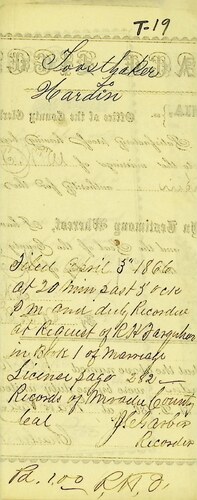 T-19
Toothaker
to
Hardin
Office of the County Clerk
In Testimony Whereof,
Filed April 3rd 1866
at 20 min past 3 oclk
P.M. and duly Recorded
at Request of R H Farquhar
in Book 1 of Marriage
License page 282
Records of County
Cal
Recorder
Pd. 1.00